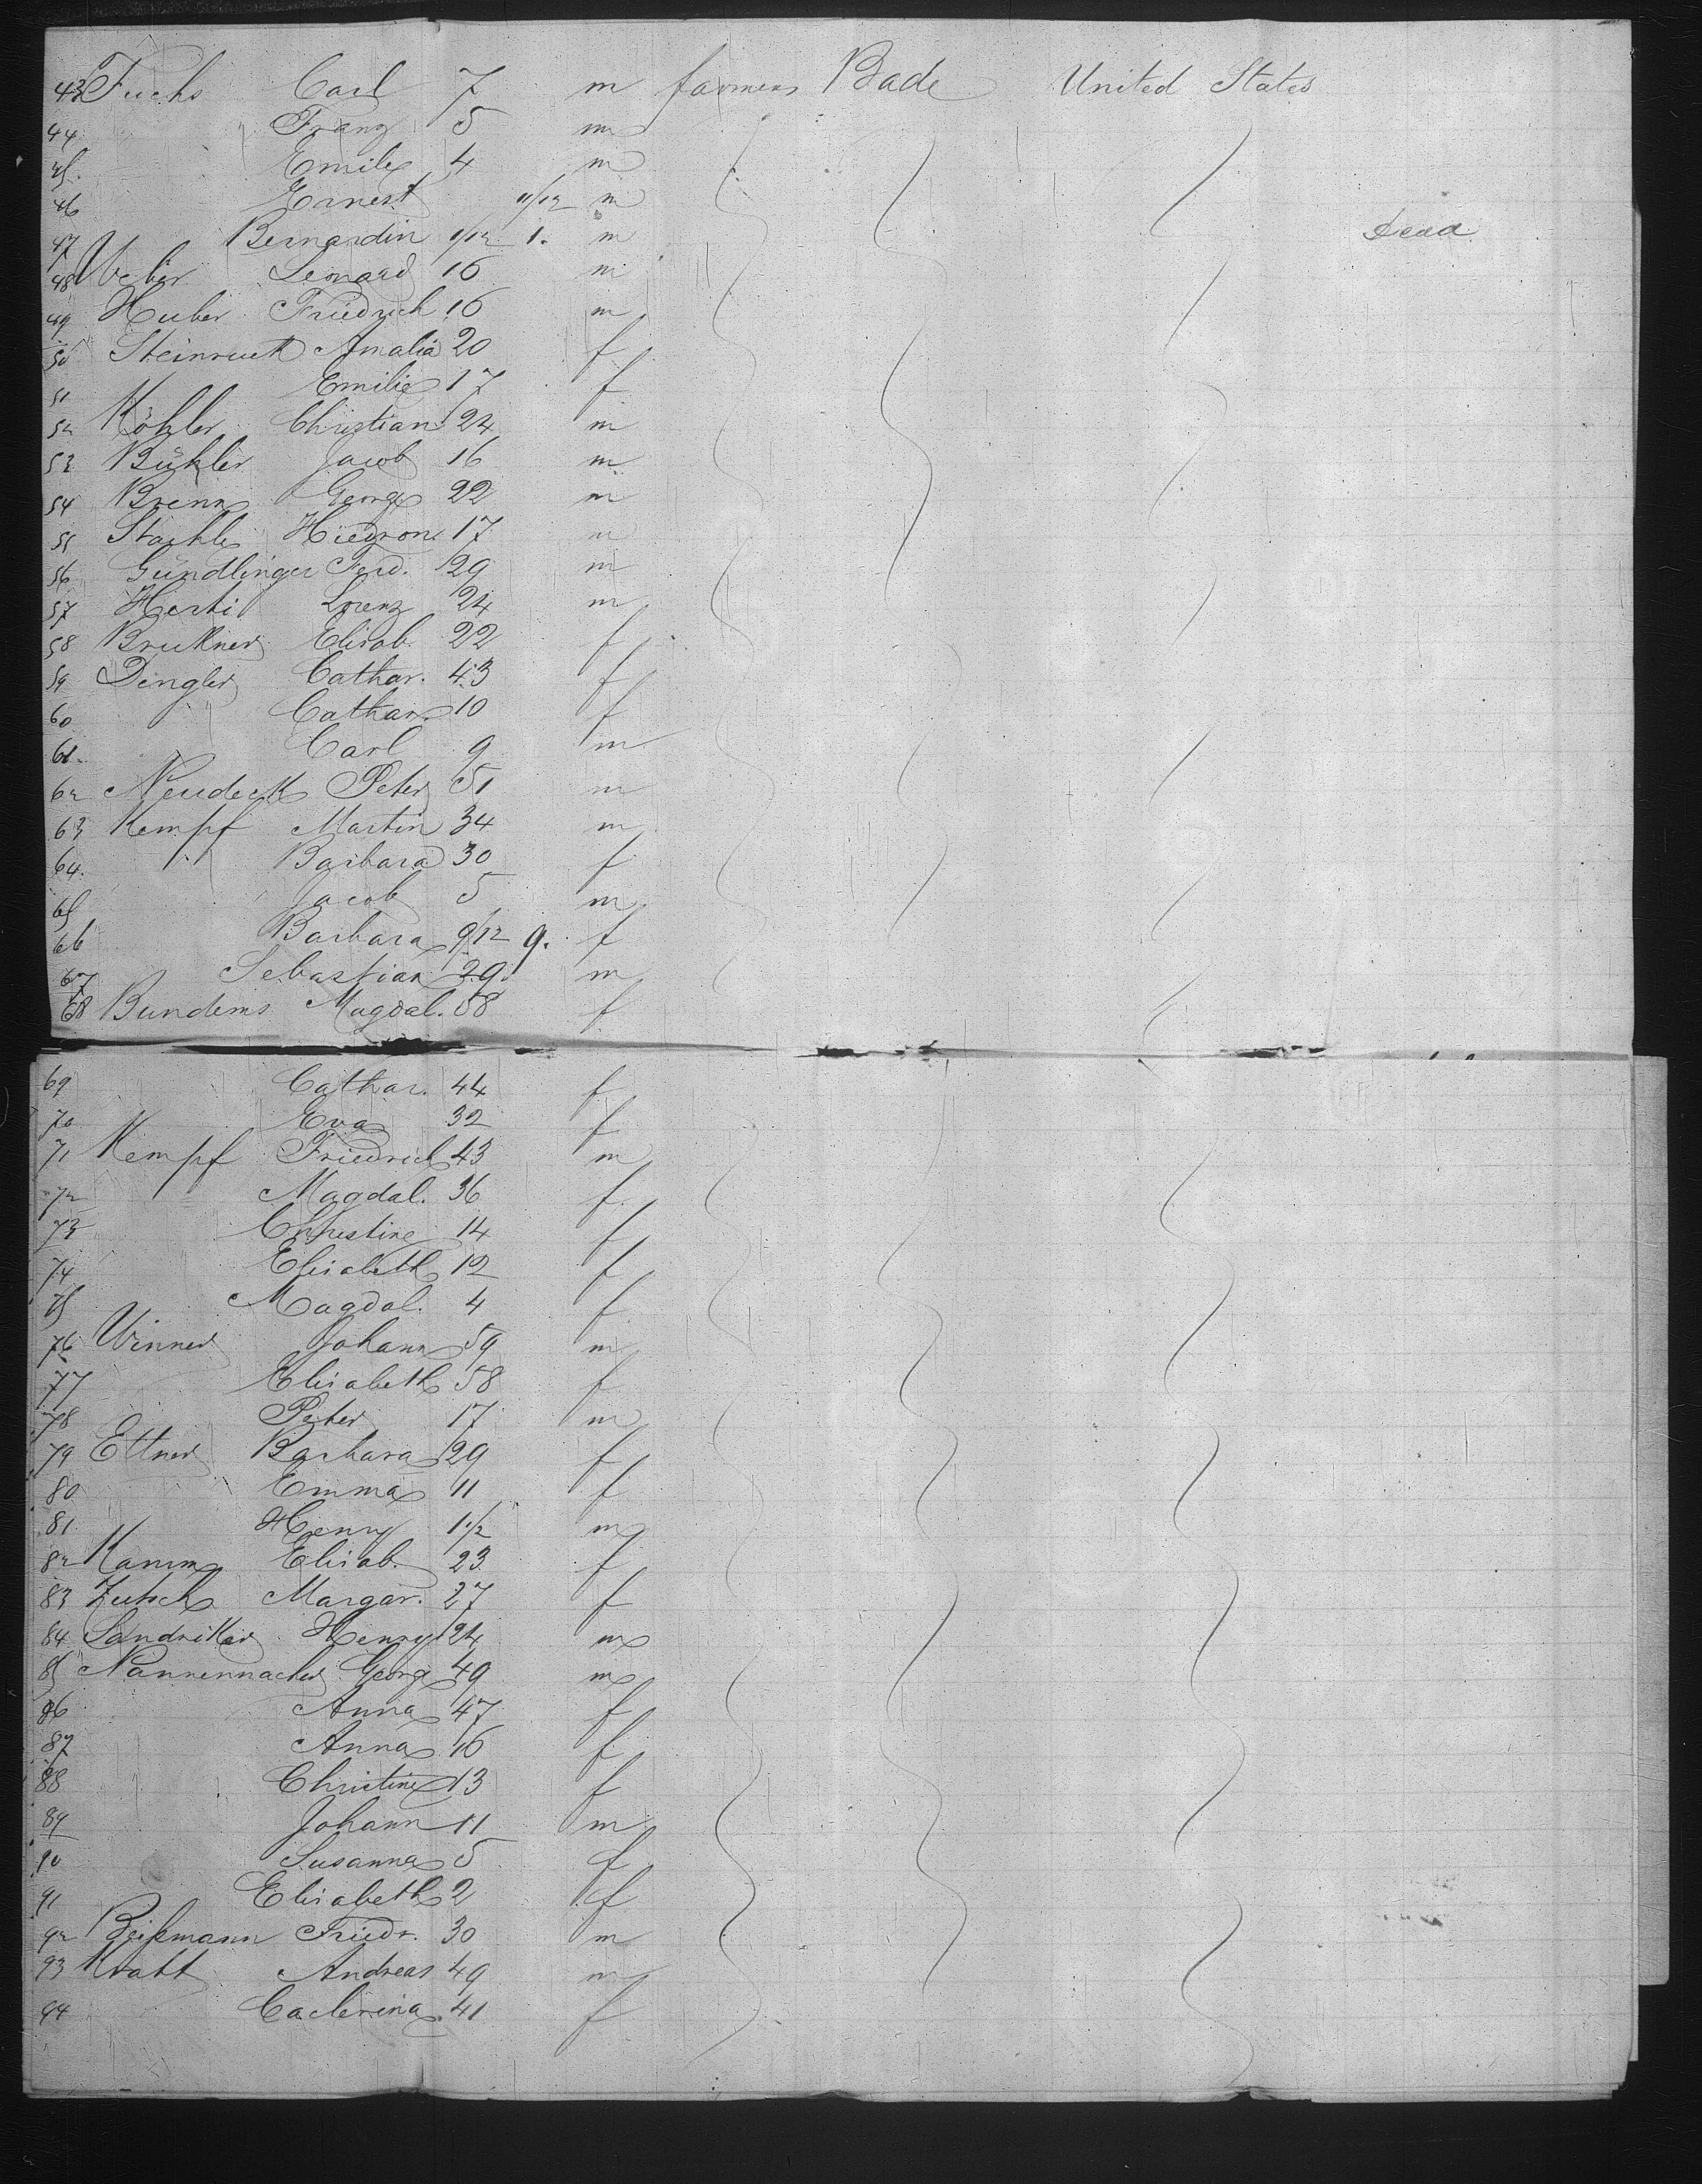 43 Fuchs Carl 7 m farmers Bade United States
44 Franz 5 m
45. Emile 4 m
46 Ernest 11/12 m
47 Bernardin 1/12 1. m Dead
48 Weber Leonard 16 m
49 Huber Friedrich 16 m
50 Amalia 20 f
51 Emilie 17 f
52 Köhler Christian 24 m
53 Bühler Jacob 16 m
54 Brenn George 22 m
55 Staehle 17 m
56 Gündlinger Ferd. 29 m
57 Lorenz 24 m
58 Brukner Elisab. 22 f
59 Dengler Cathar. 43 f
60 Cathar. 10 f
61. Carl 9 m
62 Neudeck Peter 51 m
63 Kempf Martin 34 m
64. Barbara 30 f
65 Jacob 5 m
66 Barbara 9/12 9. f
67 Sebastian 29. m
68 Magdal. 58 f
69 Cathar. 44 f
70 Eva 32 f
71 Kempf Friedrich 43 m
72 Magdal. 36 f
73 Christine 14 f
74 Elisabeth 12 f
75 Magdal. 4 f
76 Winner Johann 59 m
77 Elisabeth 58 f
78 Peter 17 m
79 Ettner Barbara 29 f
80 Emma 11 f
81 Henry 1 1/2 m
82 Kamm Elisab. 23 f
83 Margar. 27 f
84 Henry 24 m
85 Nannenmacher Georg 49 m
86 Anna 47 f
87 Anna 16 f
88 Christine 13 f
89 Johann 11 m
90 Susanna 5 f
91 Elisabeth 2 f
92 Beißmann Friedr. 30 m
93 Andreas 49 m
94 41 f